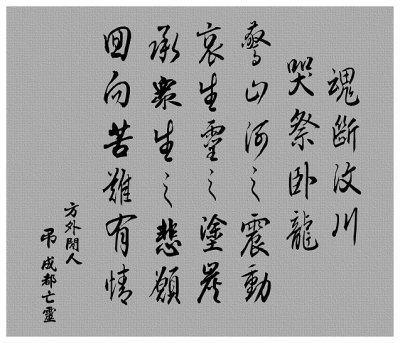 魂斷汶川
哭祭卧龍
驚山河之震動
哀生靈之塗炭
承衆生之悲願
回向苦難有情
方外閑人
吊成都亡靈